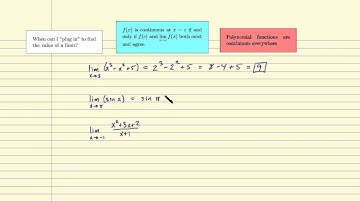 When can I "plug in" to find
the value of a limit?
f(x) is continuous at x = c if and
only if f(c) and lim f(x) both exist
x→c
and agree.
Polynomial functions are
continuous everywhere
lim (x³-x²+5) = 2³-2²+5 = 8-4+5 = 9
x→2
lim (sin x) = sin π
x→π
lim x²+3x+2
x→-1 x+1